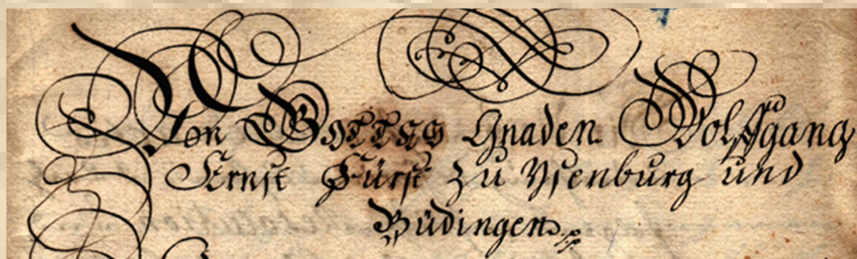 Von GOTTES Gnaden Wolffgang
Ernst Fürst zu Ysenburg und
Büdingen